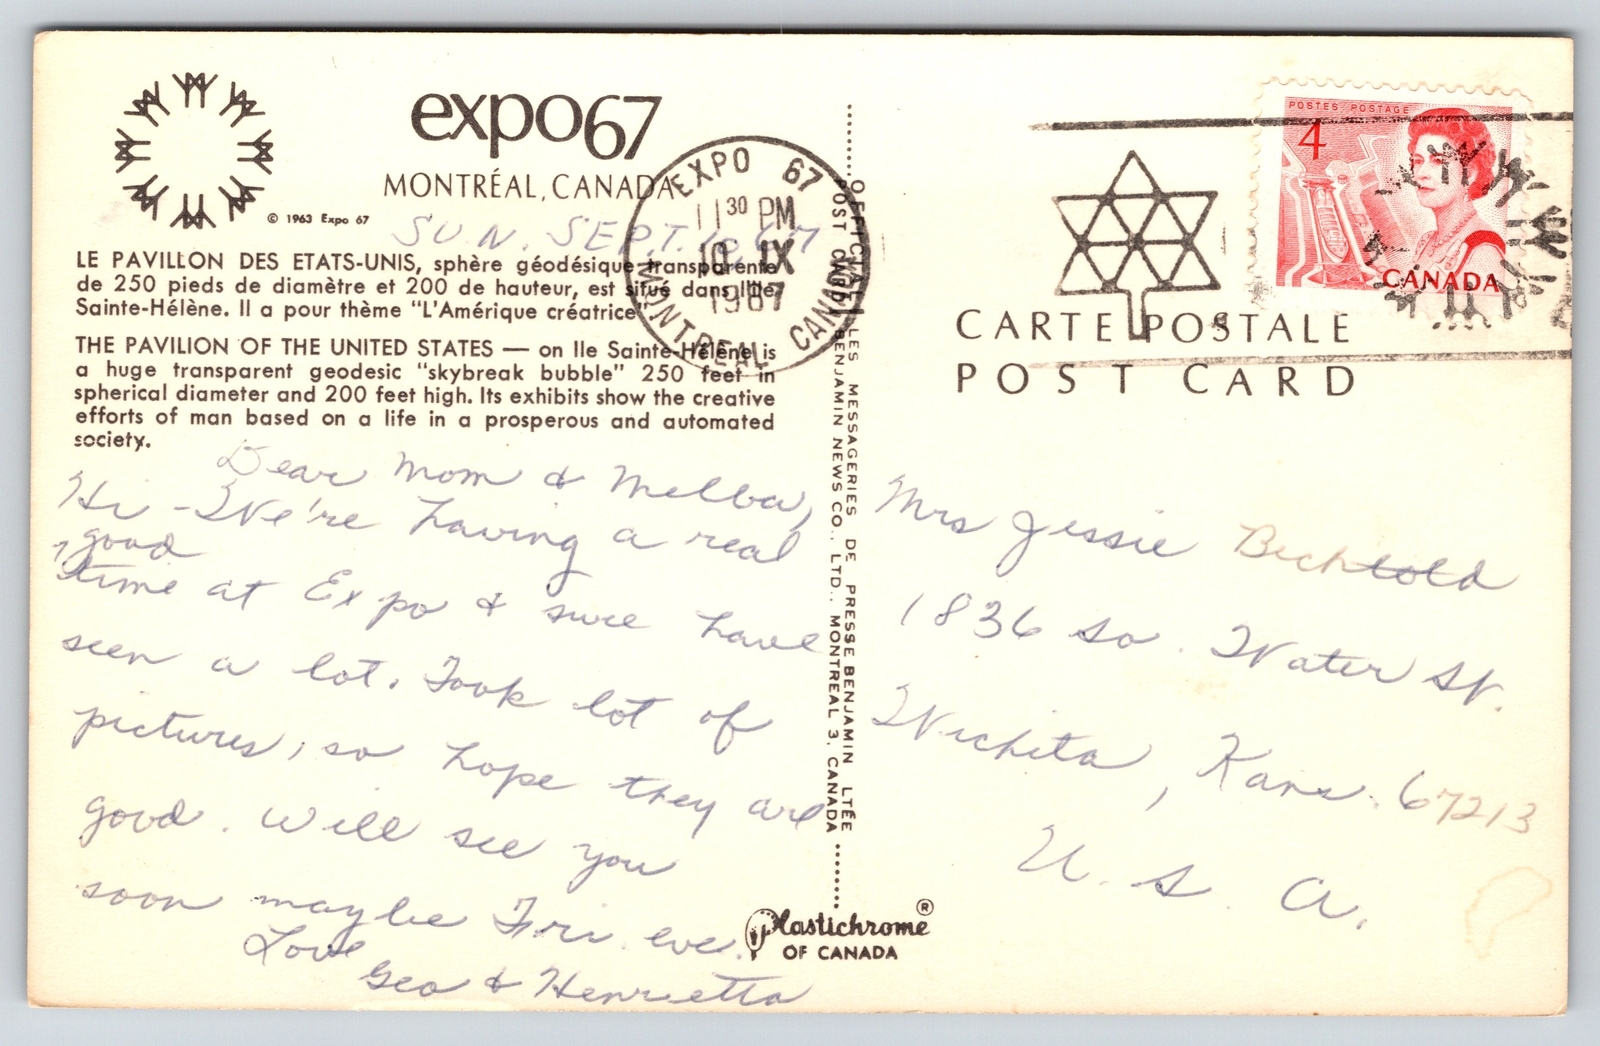 expo67
MONTRÉAL, CANADA
© 1963 Expo 67
SUN. SEPT. 10 67
LE PAVILLON DES ETATS-UNIS, sphère géodésique transparente
de 250 pieds de diamètre et 200 de hauteur, est situé dans l'Ile
Sainte-Hélène. Il a pour thème "L'Amérique créatrice".
THE PAVILION OF THE UNITED STATES — on Ile Sainte-Hélène is
a huge transparent geodesic "skybreak bubble" 250 feet in
spherical diameter and 200 feet high. Its exhibits show the creative
efforts of man based on a life in a prosperous and automated
society.
Dear Mom & Melba,
Hi - We're having a real
good
time at Expo & sure have
seen a lot. Took lot of
pictures, so hope they are
good. Will see you
soon maybe Fri. eve.
Love
Geo & Henrietta
EXPO 67
11 30 PM
10 IX
1967
MONTREAL CANADA
OFFICIAL LES MESSAGERIES DE PRESSE BENJAMIN LTÉE
POST CARD BENJAMIN NEWS CO., LTD., MONTREAL 3, CANADA
Plastichrome ®
OF CANADA
POSTES POSTAGE
4
CANADA
CARTE POSTALE
POST CARD
Mrs Jessie Bechtold
1836 So. Water St.
Wichita, Kans. 67213
U. S. A.